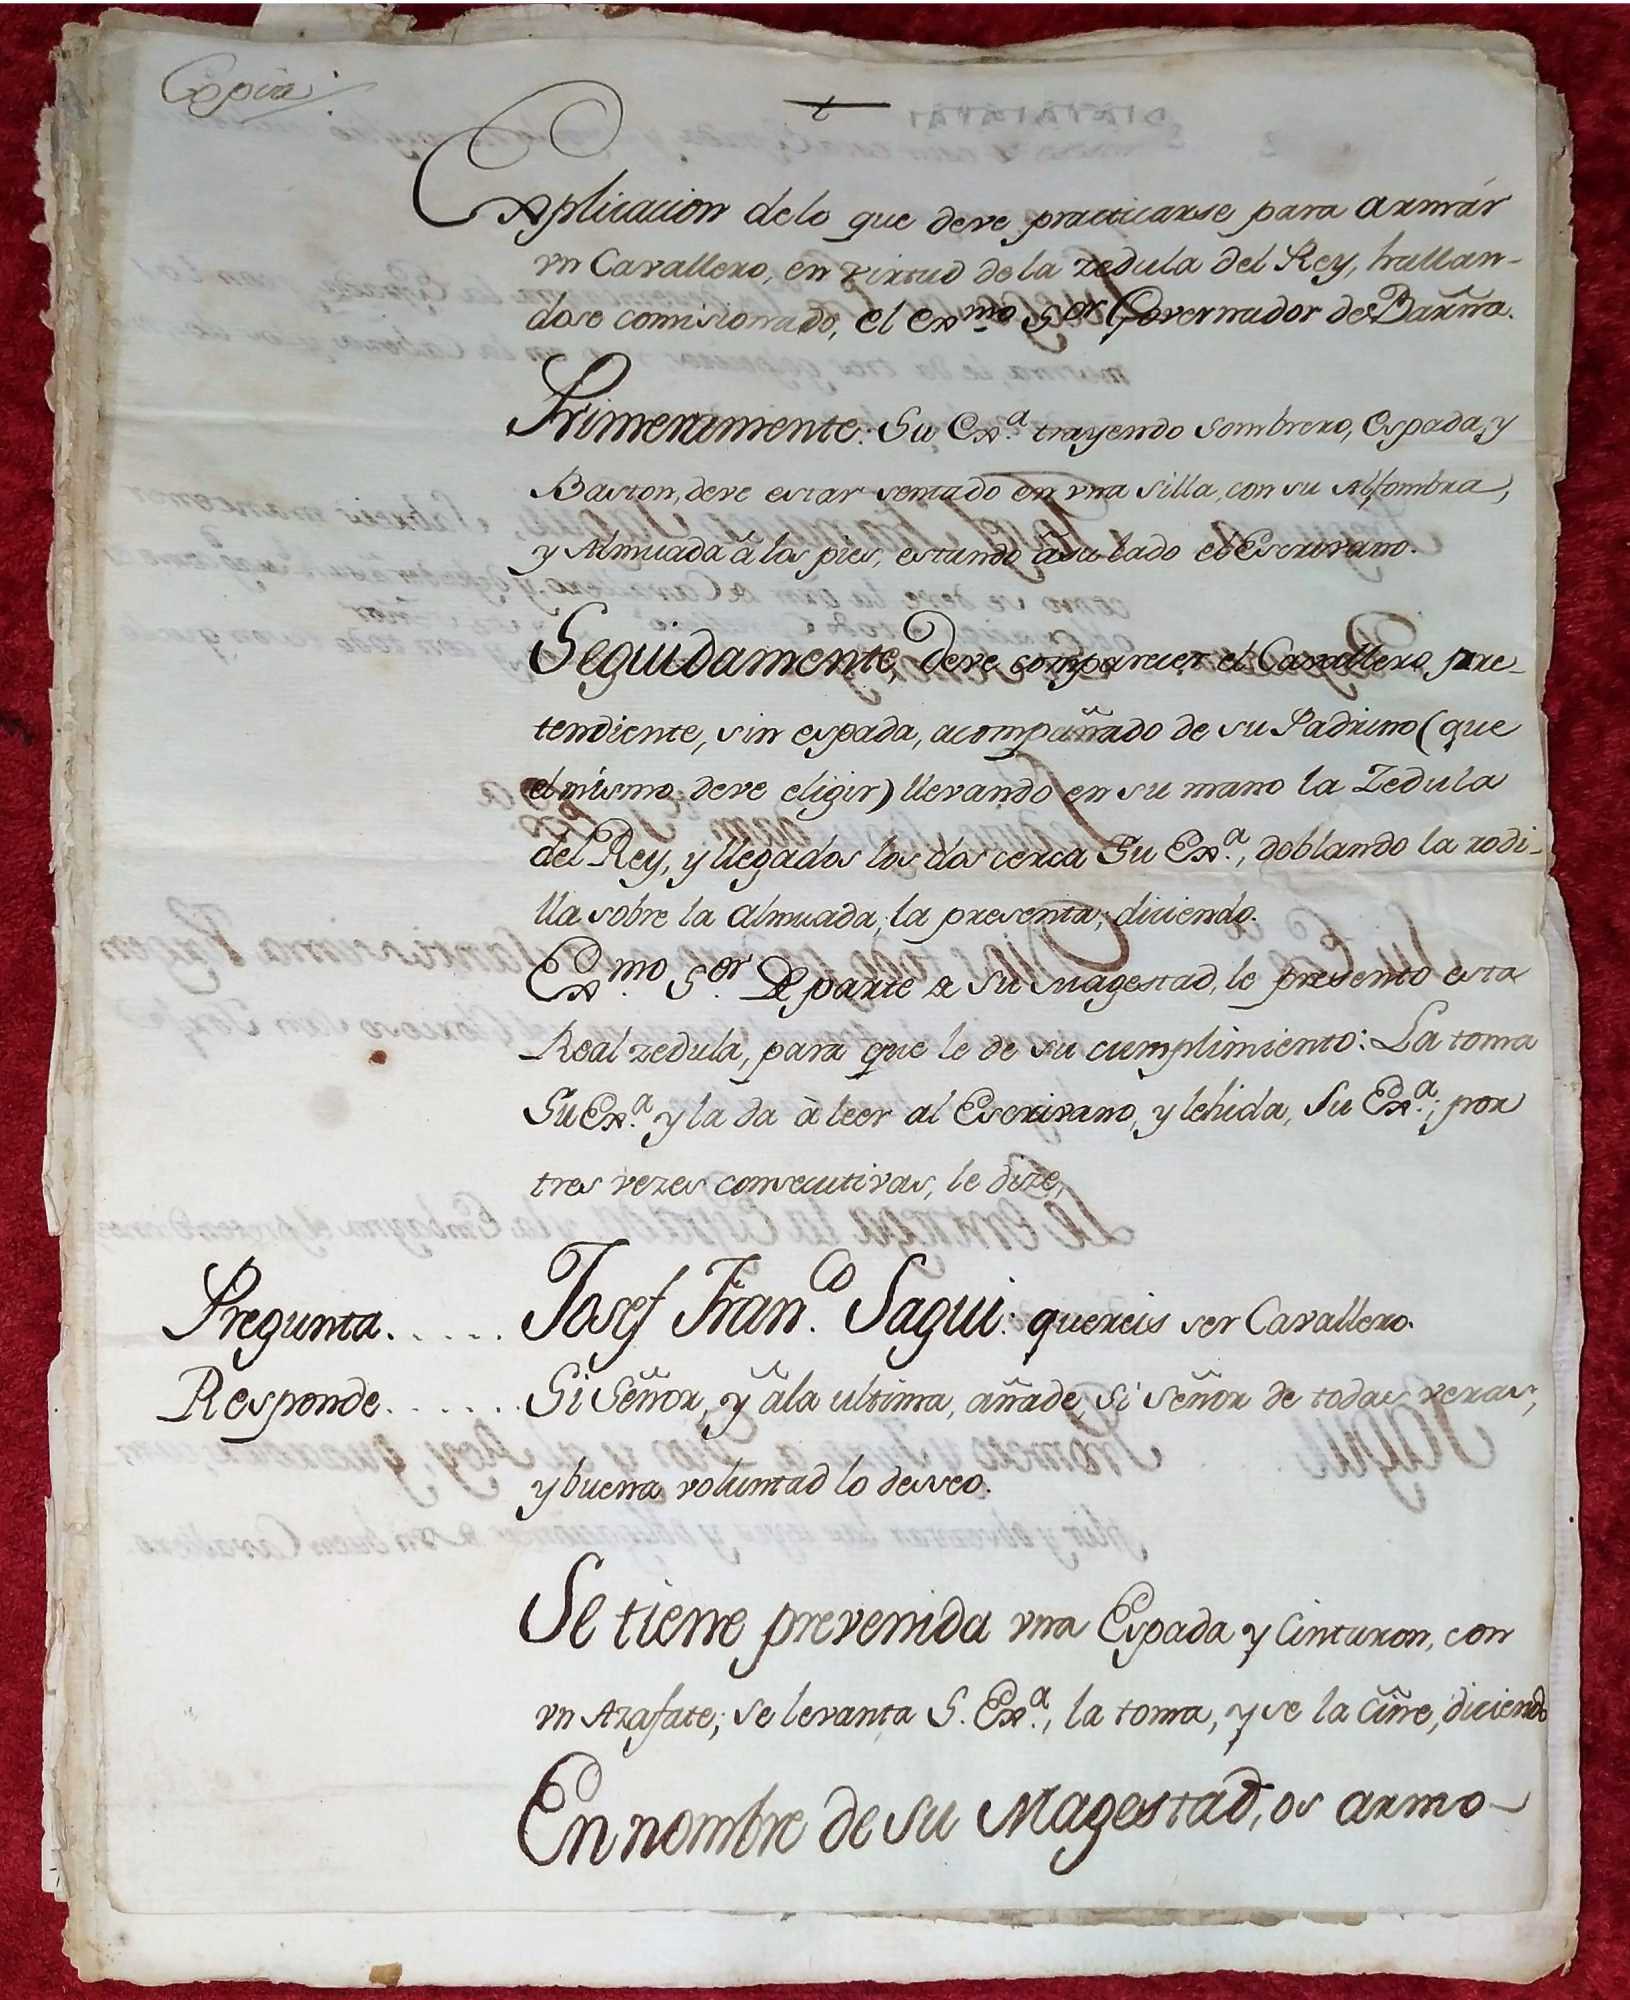 Copia
Explicacion delo que deve practicarse para armár
vn Cavallero, en virtud de la zedula del Rey, hallan-
dose comisionado, el exmo. Sor. Governador de Barña.
Primeramente: Su Exa. trayendo sombrero, Espada, y
Baston, deve estar sentado en vna silla, con su Alfombra,
y Almuada â los pies, estando âsu lado el Escrivano.
Seguidamente, deve comparecer el Cavallero pre-
tendiente, sin espada, acompañado de su Padrino (que
el mismo deve eligir) llevando en su mano la Zedula
del Rey, y llegados los dos cerca Su Exa., doblando la rodi-
lla sobre la almuada, la presenta, diciendo.
Exmo. Sor. De parte de Su Magestad, le presento esta
Real zedula, para que le de su cumplimiento: La toma
Su Exa. y la da à leer al Escrivano, y lehida, Su Exa., por
tres vezes consecutivas, le dize,
Pregunta..... Josef Franco. Sagui: quereis ser Cavallero.
Responde...... Si Señor, y âla ultima, añade, Si señor de todas veras,
y buena voluntad lo desseo.
Se tiene prevenida vna Espada y Cinturon, con
vn Azafate; se levanta S. Exa., la toma, y se la ciñe, diciendo
En nombre de su Magestad, os armo